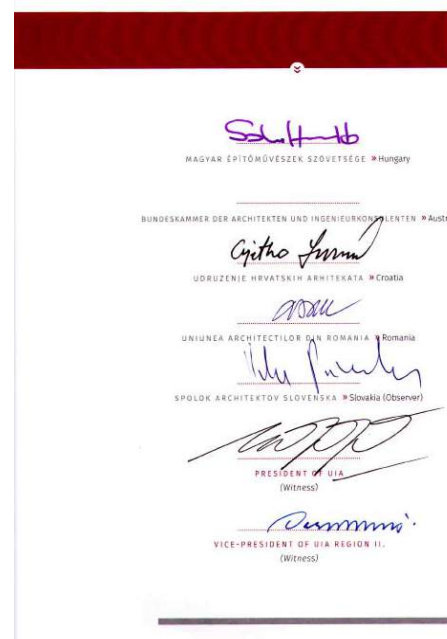 MAGYAR ÉPÍTŐMŰVÉSZEK SZÖVETSÉGE » Hungary
BUNDESKAMMER DER ARCHITEKTEN UND INGENIEURKONSULENTEN » Aust
UDRUZENJE HRVATSKIH ARHITEKATA » Croatia
UNIUNEA ARCHITECTILOR DIN ROMANIA » Romania
SPOLOK ARCHITEKTOV SLOVENSKA » Slovakia (Observer)
PRESIDENT OF UIA
(Witness)
VICE-PRESIDENT OF UIA REGION II.
(Witness)